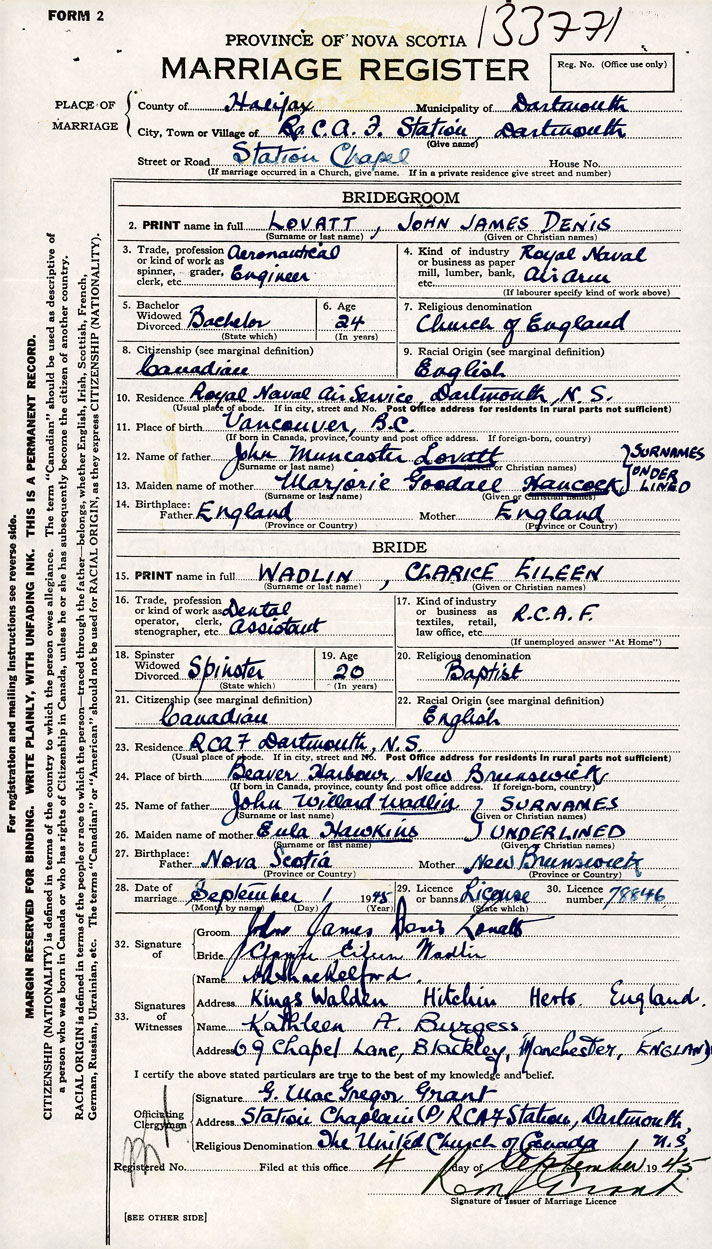 FORM 2
133771
PROVINCE OF NOVA SCOTIA
MARRIAGE REGISTER
Reg. No. (Office use only)
PLACE OF MARRIAGE
County of Halifax Municipality of Dartmouth
City, Town or Village of R.C.A.F. Station, Dartmouth
(Give name)
Street or Road Station Chapel House No.
(If marriage occurred in a Church, give name. If in a private residence give street and number)
BRIDEGROOM
2. PRINT name in full LOVATT, JOHN JAMES DENIS
(Surname or last name) (Given or Christian names)
3. Trade, profession or kind of work as spinner, grader, clerk, etc. Aeronautical Engineer
4. Kind of industry or business as paper mill, lumber, bank, etc. Royal Naval Air Arm
(If labourer specify kind of work above)
5. Bachelor Widowed Divorced Bachelor
(State which)
6. Age 24
(In years)
7. Religious denomination
Church of England
8. Citizenship (see marginal definition)
Canadian
9. Racial Origin (see marginal definition)
English
10. Residence Royal Naval Air Service, Dartmouth, N.S.
(Usual place of abode. If in city, street and No. Post Office address for residents in rural parts not sufficient)
11. Place of birth Vancouver, B.C.
(If born in Canada, province, county and post office address. If foreign-born, country)
12. Name of father John Muncaster Lovatt
(Surname or last name) (Given or Christian names)
13. Maiden name of mother Marjorie Goodall Hancock
(Surname or last name) (Given or Christian names)
SURNAMES UNDER LINED
14. Birthplace: Father England Mother England
(Province or Country) (Province or Country)
BRIDE
15. PRINT name in full WADLIN, CLARICE EILEEN
(Surname or last name) (Given or Christian names)
16. Trade, profession or kind of work as operator, clerk, stenographer, etc. Dental Assistant
17. Kind of industry or business as textiles, retail, law office, etc. R.C.A.F.
(If unemployed answer "At Home")
18. Spinster Widowed Divorced Spinster
(State which)
19. Age 20
(In years)
20. Religious denomination
Baptist
21. Citizenship (see marginal definition)
Canadian
22. Racial Origin (see marginal definition)
English
23. Residence RCAF Dartmouth, N.S.
(Usual place of abode. If in city, street and No. Post Office address for residents in rural parts not sufficient)
24. Place of birth Beaver Harbour, New Brunswick
(If born in Canada, province, county and post office address. If foreign-born, country)
25. Name of father John Willard Wadlin } SURNAMES
(Surname or last name) (Given or Christian names)
26. Maiden name of mother Eula Hawkins } UNDERLINED
(Surname or last name) (Given or Christian names)
27. Birthplace: Father Nova Scotia Mother New Brunswick
(Province or Country) (Province or Country)
28. Date of marriage September 1 1945
(Month by name) (Day) (Year)
29. Licence or banns License
(State which)
30. Licence number 78846
32. Signature of
Groom John James Denis Lovatt
Bride Clarice Eileen Wadlin
33. Signatures of Witnesses
Name
Address Kings Walden Hitchin Herts England.
Name Kathleen A. Burgess
Address 69 Chapel Lane, Blackley, Manchester, ENGLAND
I certify the above stated particulars are true to the best of my knowledge and belief.
Officiating Clergyman
Signature G. MacGregor Grant
Address Station Chaplain (P) RCAF Station, Dartmouth, N.S.
Religious Denomination The United Church of Canada
Registered No. Filed at this office 4 day of September 1945
Signature of Issuer of Marriage Licence
[SEE OTHER SIDE]
For registration and mailing instructions see reverse side.
MARGIN RESERVED FOR BINDING. WRITE PLAINLY, WITH UNFADING INK. THIS IS A PERMANENT RECORD.
CITIZENSHIP (NATIONALITY) is defined in terms of the country to which the person owes allegiance. The term "Canadian" should be used as descriptive of
a person who was born in Canada or who has rights of Citizenship in Canada, unless he or she has subsequently become the citizen of another country.
RACIAL ORIGIN is defined in terms of the people or race to which the person—traced through the father—belongs, whether English, Irish, Scottish, French,
German, Russian, Ukrainian, etc. The terms "Canadian" or "American" should not be used for RACIAL ORIGIN, as they express CITIZENSHIP (NATIONALITY).